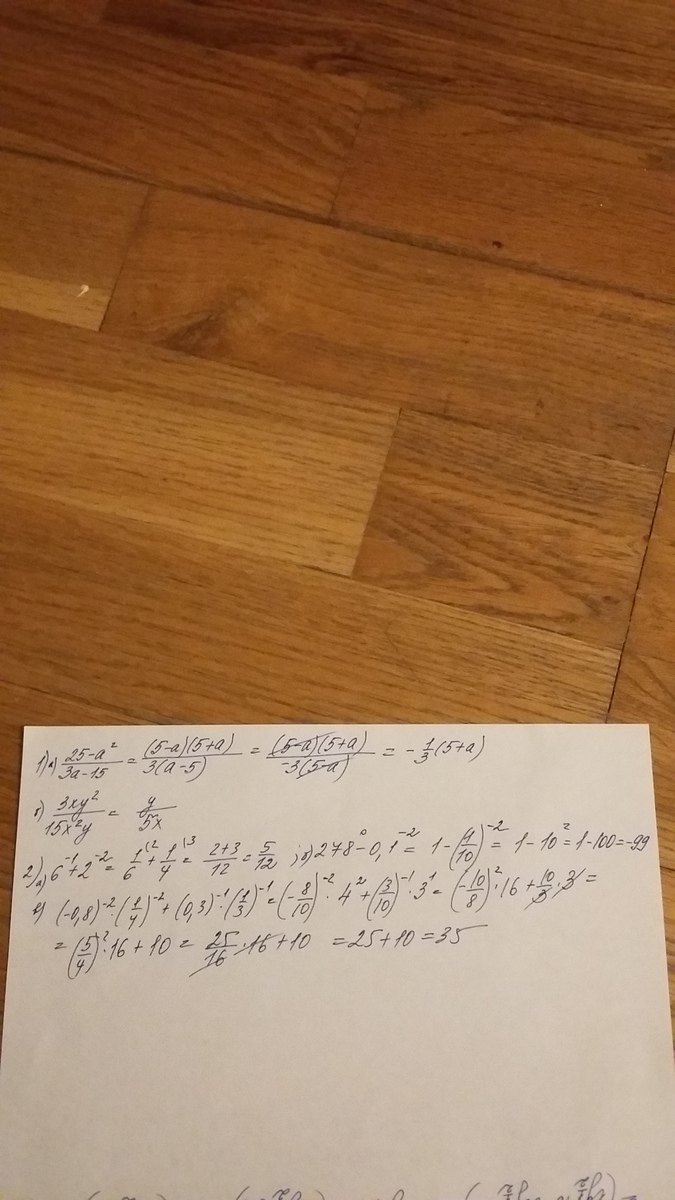 1) а) (25-a²)/(3a-15) = ((5-a)(5+a))/(3(a-5)) = ((5-a)(5+a))/(-3(5-a)) = -1/3(5+a)
б) (3xy²)/(15x²y) = y/(5x)
2) а) 6⁻¹+2⁻² = 1/6^(2 + 1/4^(3 = (2+3)/12 = 5/12 ; б) 278⁰-0,1⁻² = 1-(1/10)⁻² = 1-10² = 1-100=-99
в) (-0,8)⁻²·(1/4)⁻²+(0,3)⁻¹·(1/3)⁻¹=(-8/10)⁻²·4²+(3/10)⁻¹·3¹=(-10/8)²·16+10/3·3=
=(5/4)²·16+10 = 25/16·16+10 =25+10=35